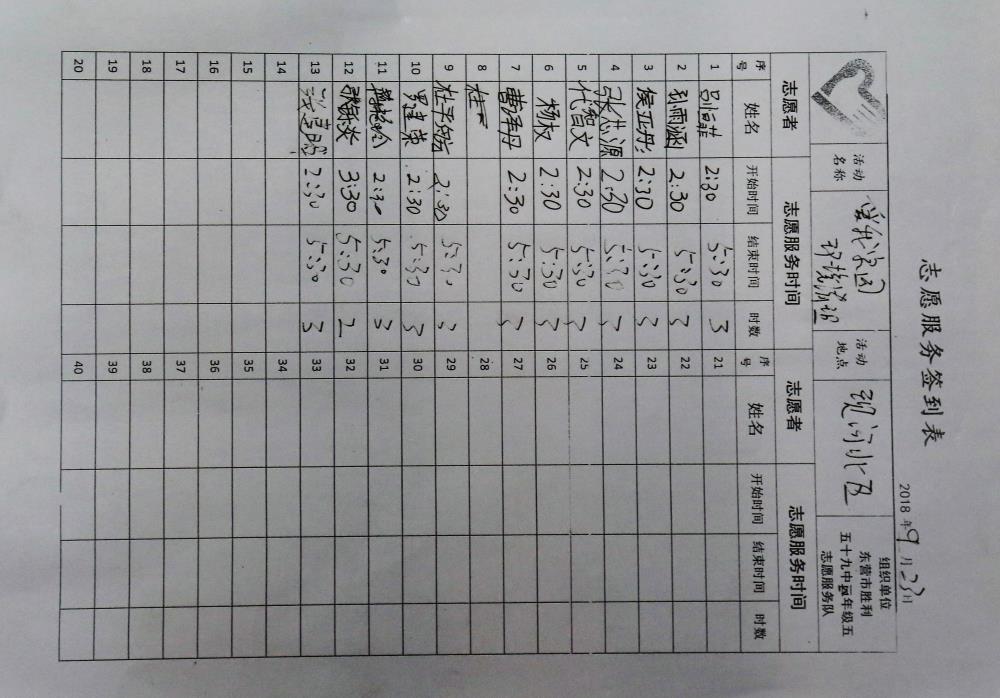 志愿服务签到表
2018年9月23日
活动名称
环境清理
活动地点
组织单位
东营市胜利
五十九中
年级五
志愿服务队
志愿者 志愿服务时间 志愿者 志愿服务时间
序号 姓名 开始时间 结束时间 时数 序号 姓名 开始时间 结束时间 时数
1 2:30 5:30 3 21
2 孙雨涵 2:30 5:30 3 22
3 侯亚丹 2:30 5:30 3 23
4 张志源 2:30 5:30 3 24
5 代智文 2:30 5:30 3 25
6 杨权 2:30 5:30 3 26
7 曹泽丹 2:30 5:30 3 27
8 28
9 2:30 5:30 3 29
10 罗建荣 2:30 5:30 3 30
11 2:30 5:30 3 31
12 3:30 5:30 2 32
13 2:30 5:30 3 33
14 34
15 35
16 36
17 37
18 38
19 39
20 40